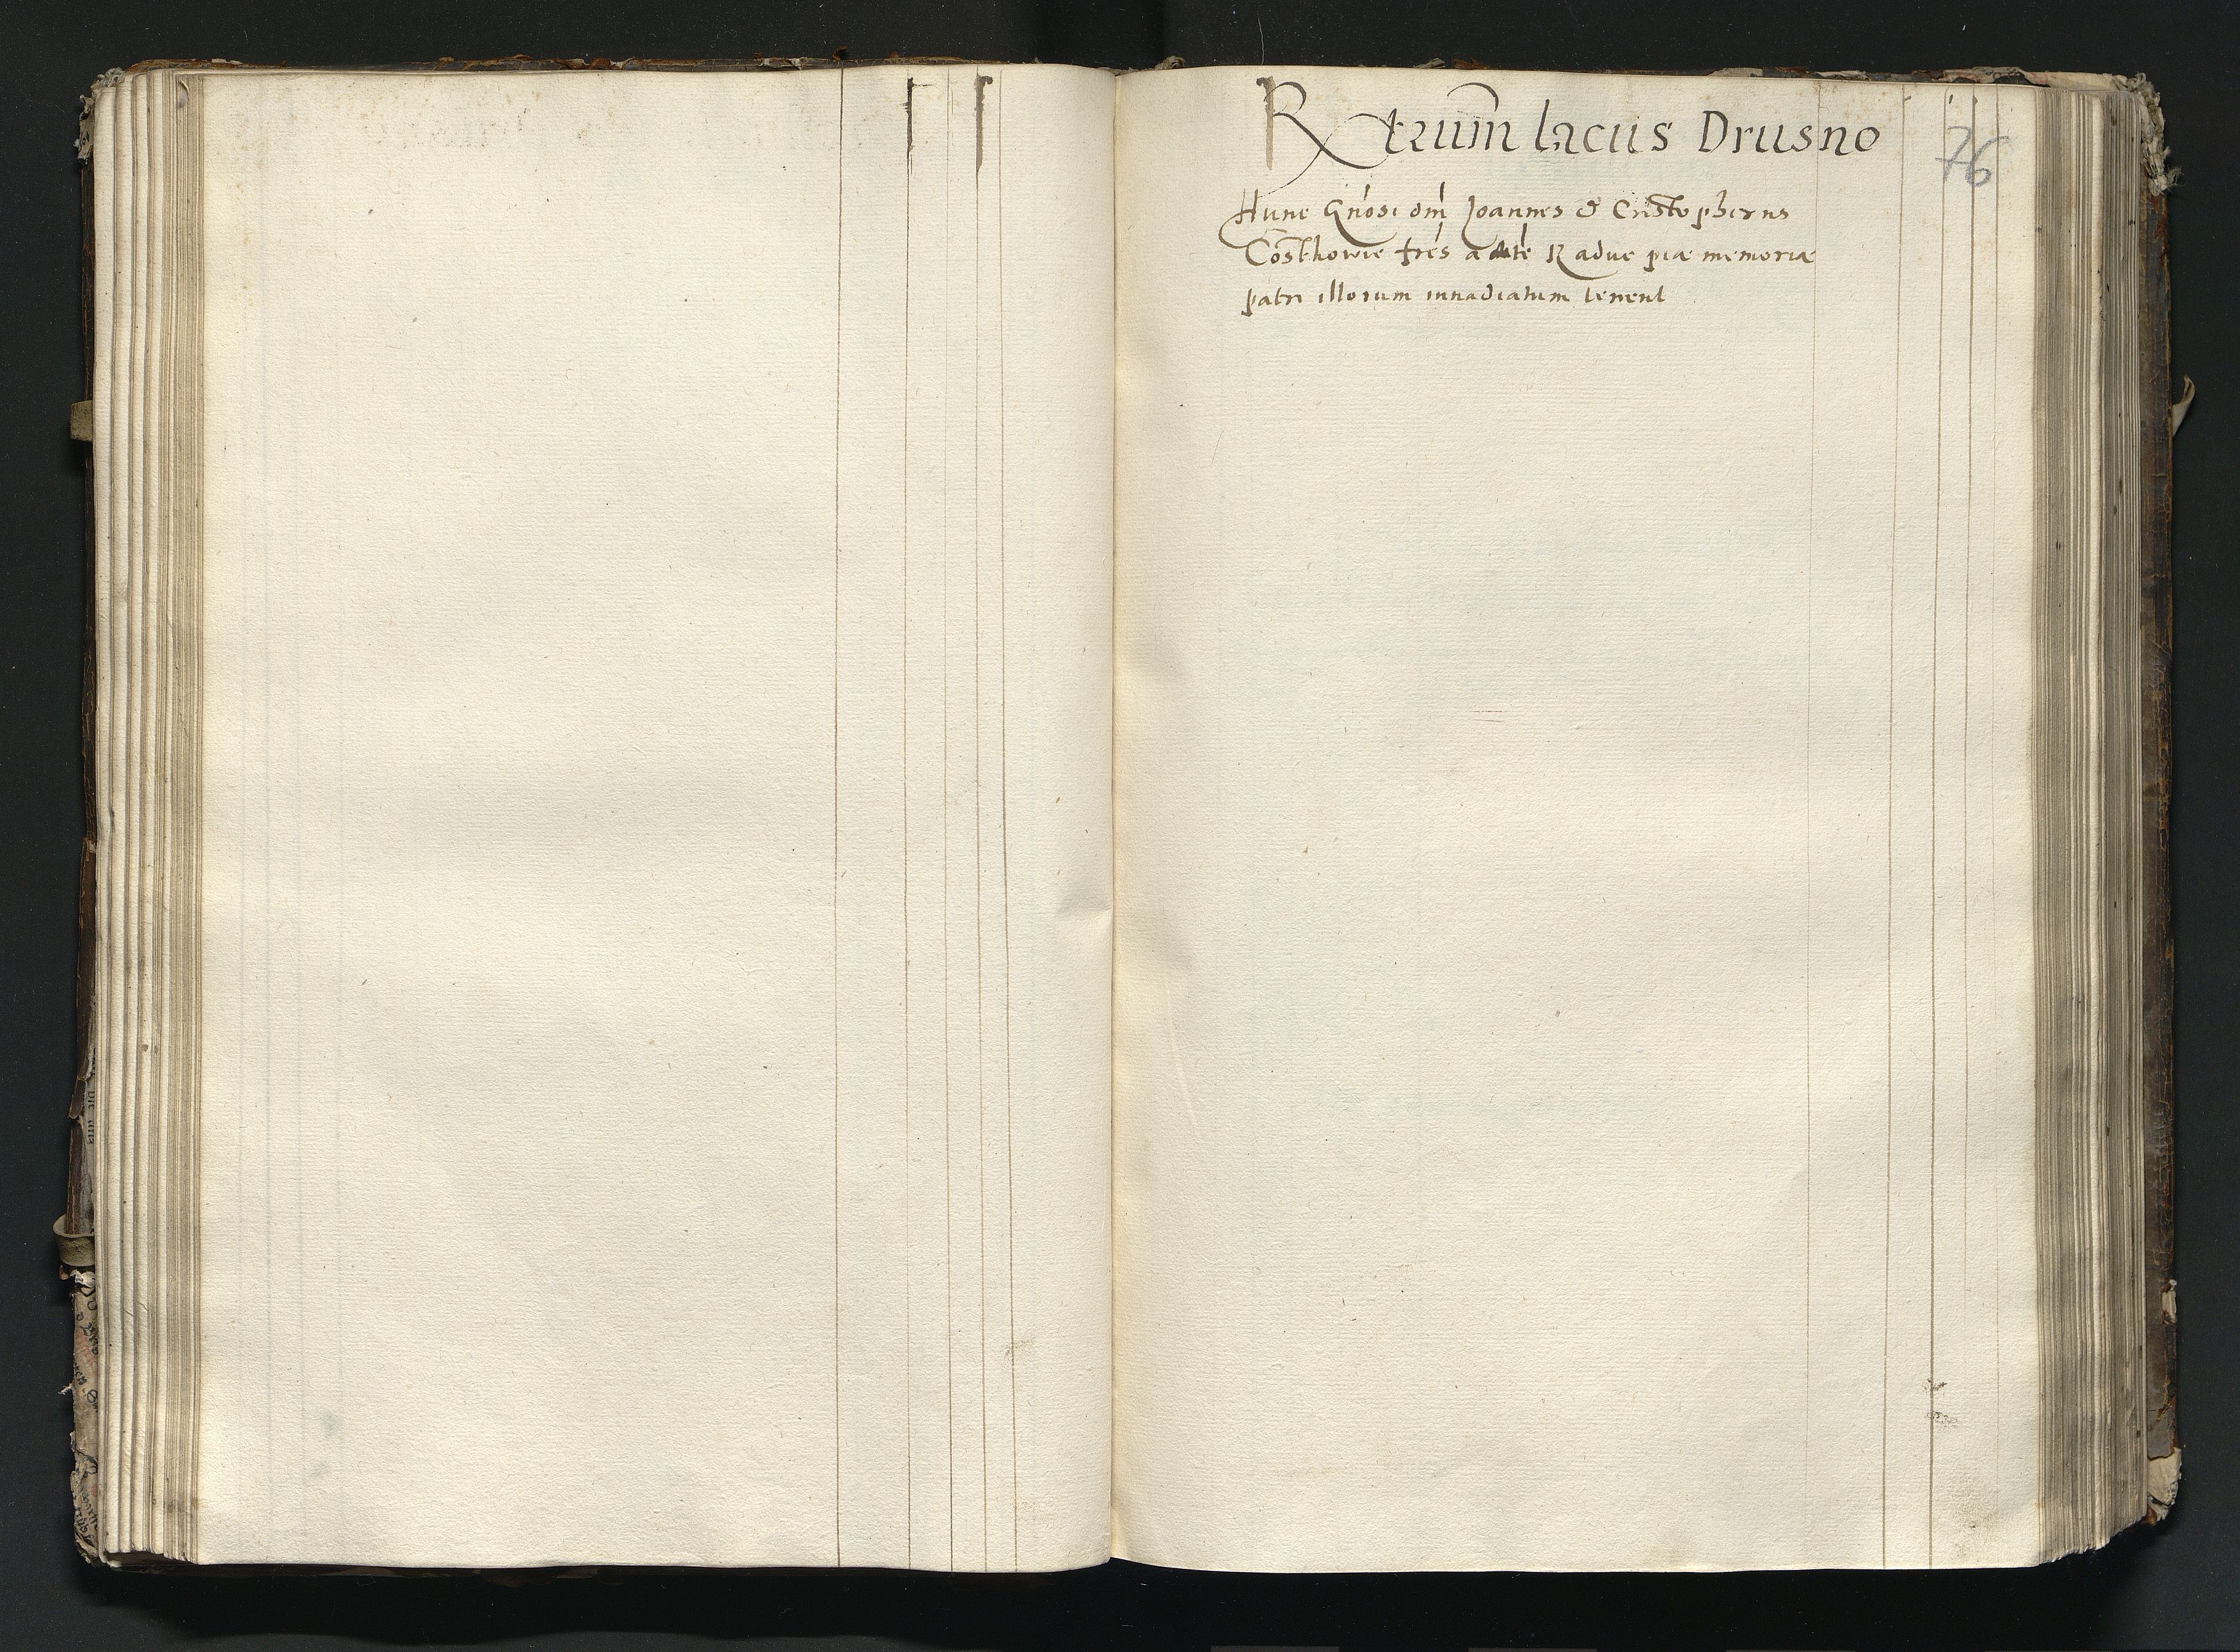 Rtaum̄ lacus Drusno
76
Hunc Gn̄osi dm̄ Joannes & Cristopherus
Costhowie fr̄es a Radve piæ memoriæ
patri illorum invadiatum tenent